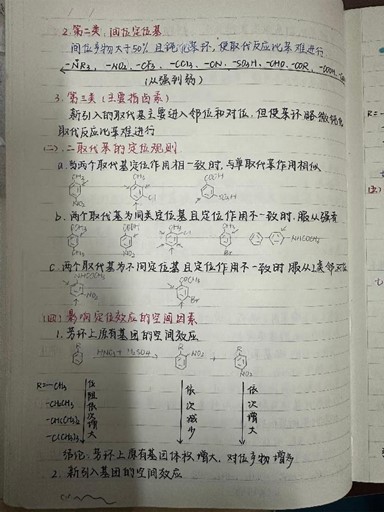 2. 第二类：间位定位基
间位产物大于50% 且钝化苯环，使取代反应比苯难进行
-NR₃、-NO₂、-CF₃、-CCl₃、-CN、-SO₃H、-CHO、-COR、-COOH、
(从强到弱)
3. 第三类（主要指卤素）
新引入的取代基主要进入邻位和对位，但使苯环略微钝化
取代反应比苯难进行
(三)、二取代苯的定位规则
a. 当两个取代基定位作用相一致时，与单取代苯作用相似
CH₃ CH₃ COOH
NO₂ Cl SO₃H
b. 两个取代基为同类定位基且定位作用不一致时，服从强者
NHCOCH₃
c. 两个取代基为不同定位基且定位作用不一致时 服从1类邻对位
NHCOCH₃
NO₂ Br
(四) 影响定位效应的空间因素
1. 芳环上原有基团的空间效应
R HNO₃ + H₂SO₄ R NO₂ + R
NO₂
R=-CH₃
-CH₂CH₃
-CH(CH₃)₂
-C(CH₃)₃
位阻依次增大
依次减少
依次增大
结论：芳环上原有基团体积增大，对位产物增多
2. 新引入基团的空间效应